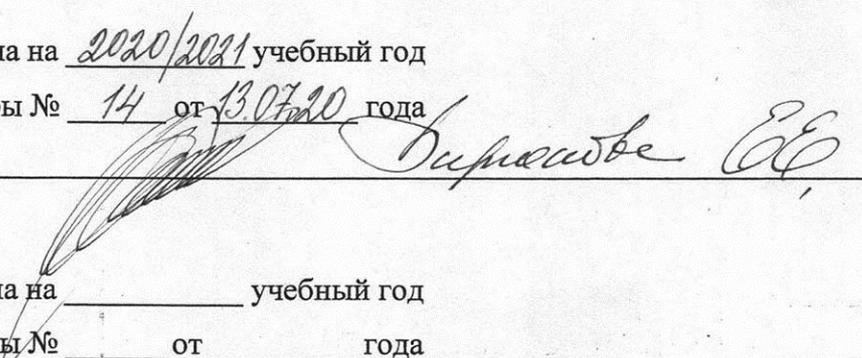 на на 2020/2021 учебный год
ры № 14 от 13.07.20 года
Е.Е.
на на ____________ учебный год
ры № ________ от ____________ года